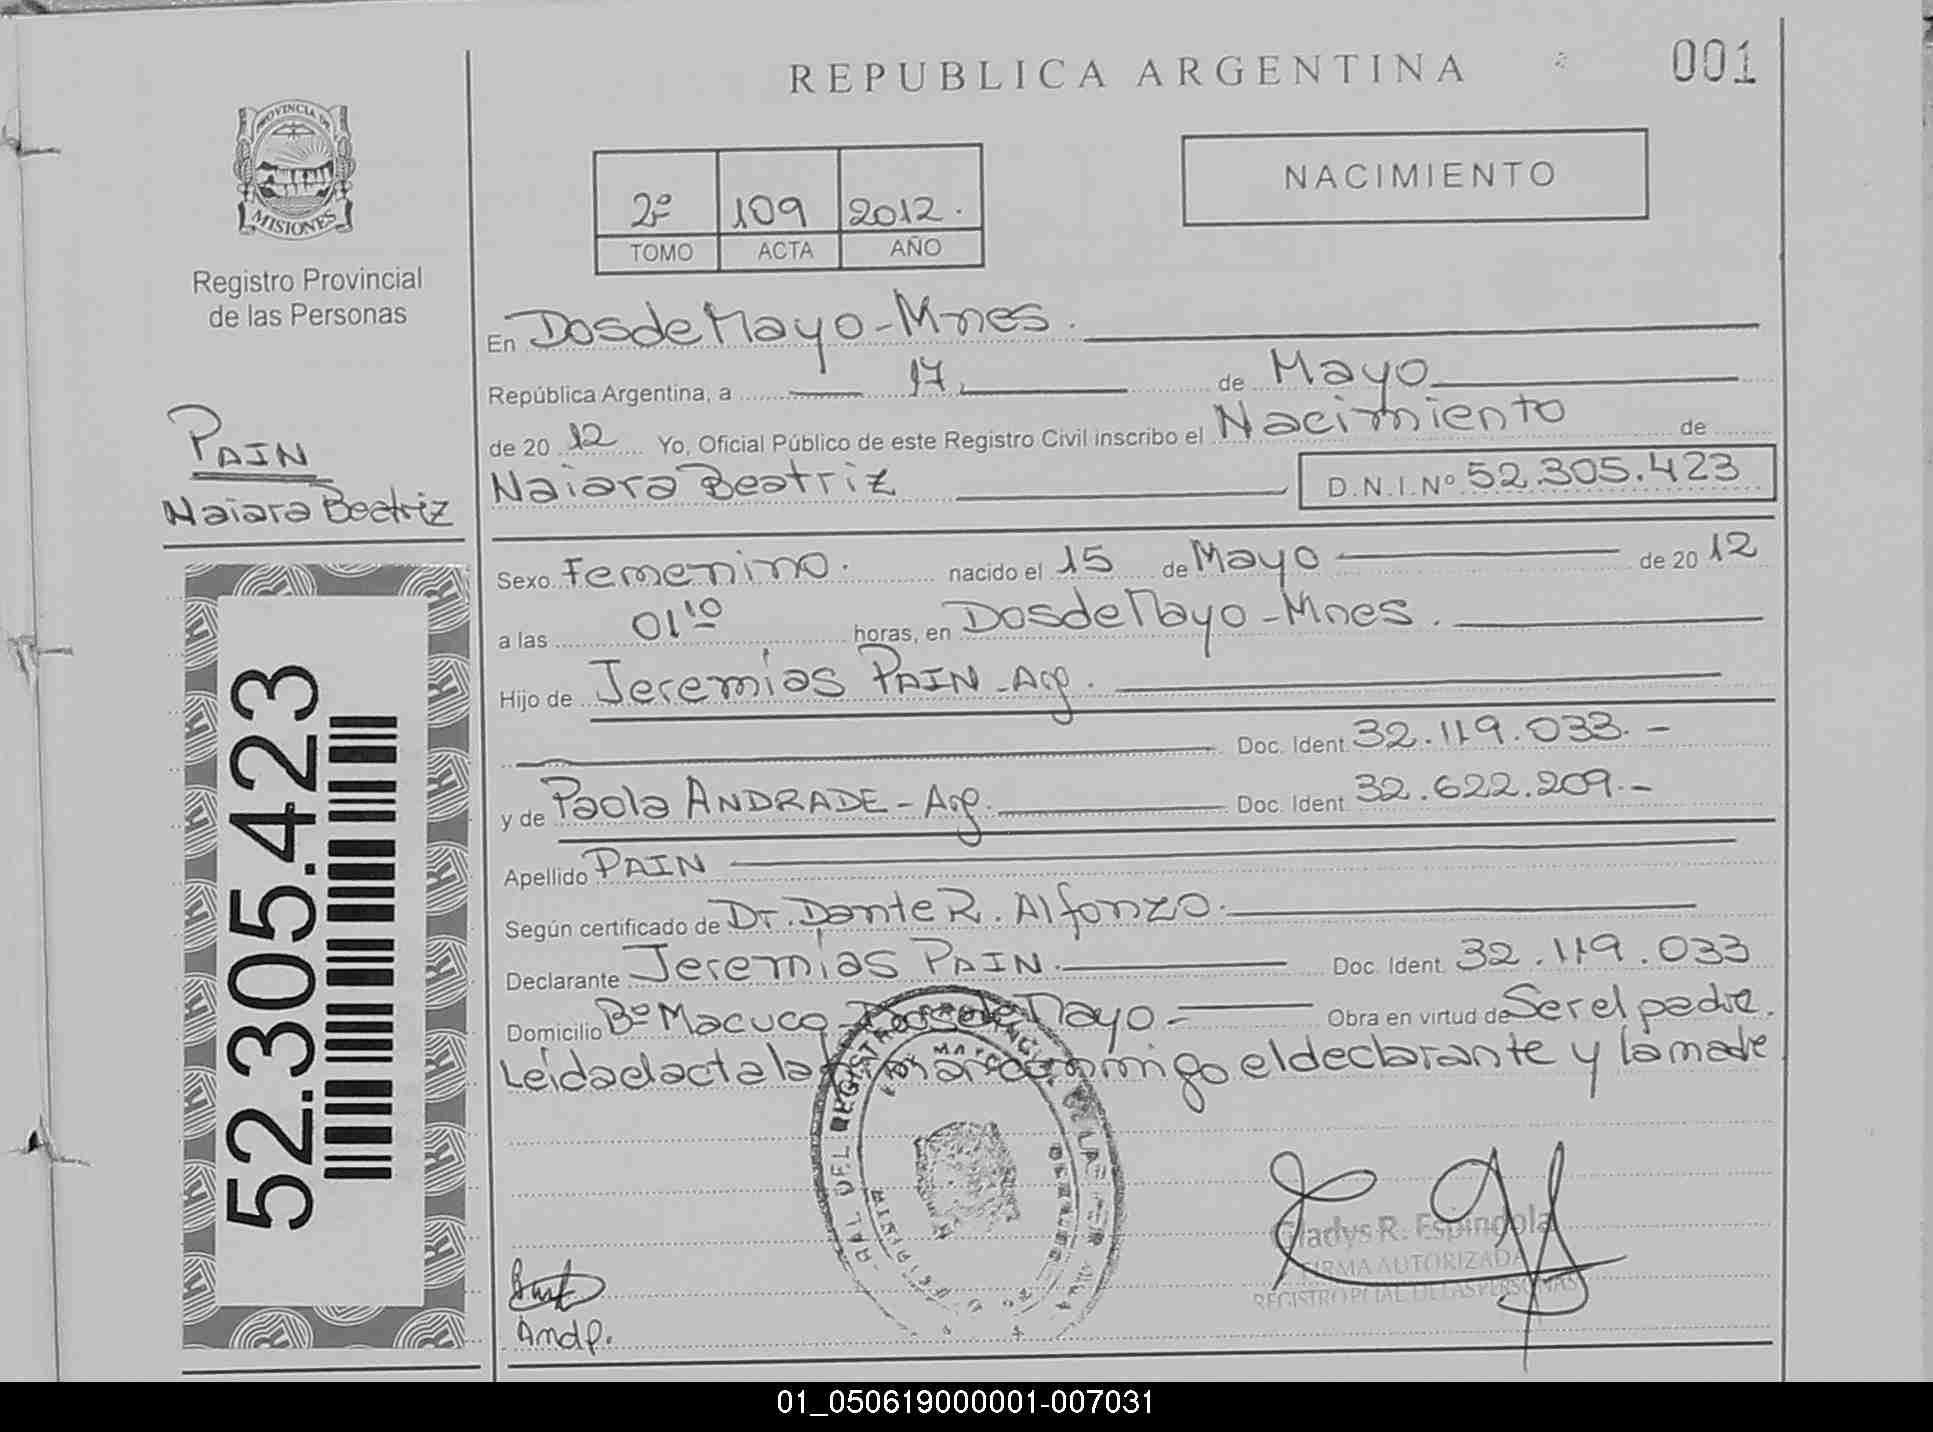 REPUBLICA ARGENTINA
001
PROVINCIA DE
MISIONES
Registro Provincial
de las Personas
2º 109 2012.
TOMO ACTA AÑO
NACIMIENTO
En Dos de Mayo - Mnes.
República Argentina, a 17 de Mayo
de 20 12 Yo, Oficial Público de este Registro Civil inscribo el Nacimiento de
Naiara Beatriz D.N.I.Nº 52.305.423
PAIN
Naiara Beatriz
52.305.423
Sexo Femenino. nacido el 15 de Mayo de 20 12
a las 01 10 horas, en Dos de Mayo - Mnes.
Hijo de Jeremías PAIN - Arg.
Doc. Ident. 32.119.033.-
y de Paola ANDRADE - Arg. Doc. Ident. 32.622.209.-
Apellido PAIN
Según certificado de Dr. Dante R. Alfonzo.
Declarante Jeremías PAIN. Doc. Ident. 32.119.033
Domicilio Bº Macuco - Dos de Mayo - Obra en virtud de Ser el padre.
Leída el acta la firman conmigo el declarante y la madre
Gladys R. Espindola
FIRMA AUTORIZADA
REGISTRO PCIAL. DE LAS PERSONAS
01_050619000001-007031